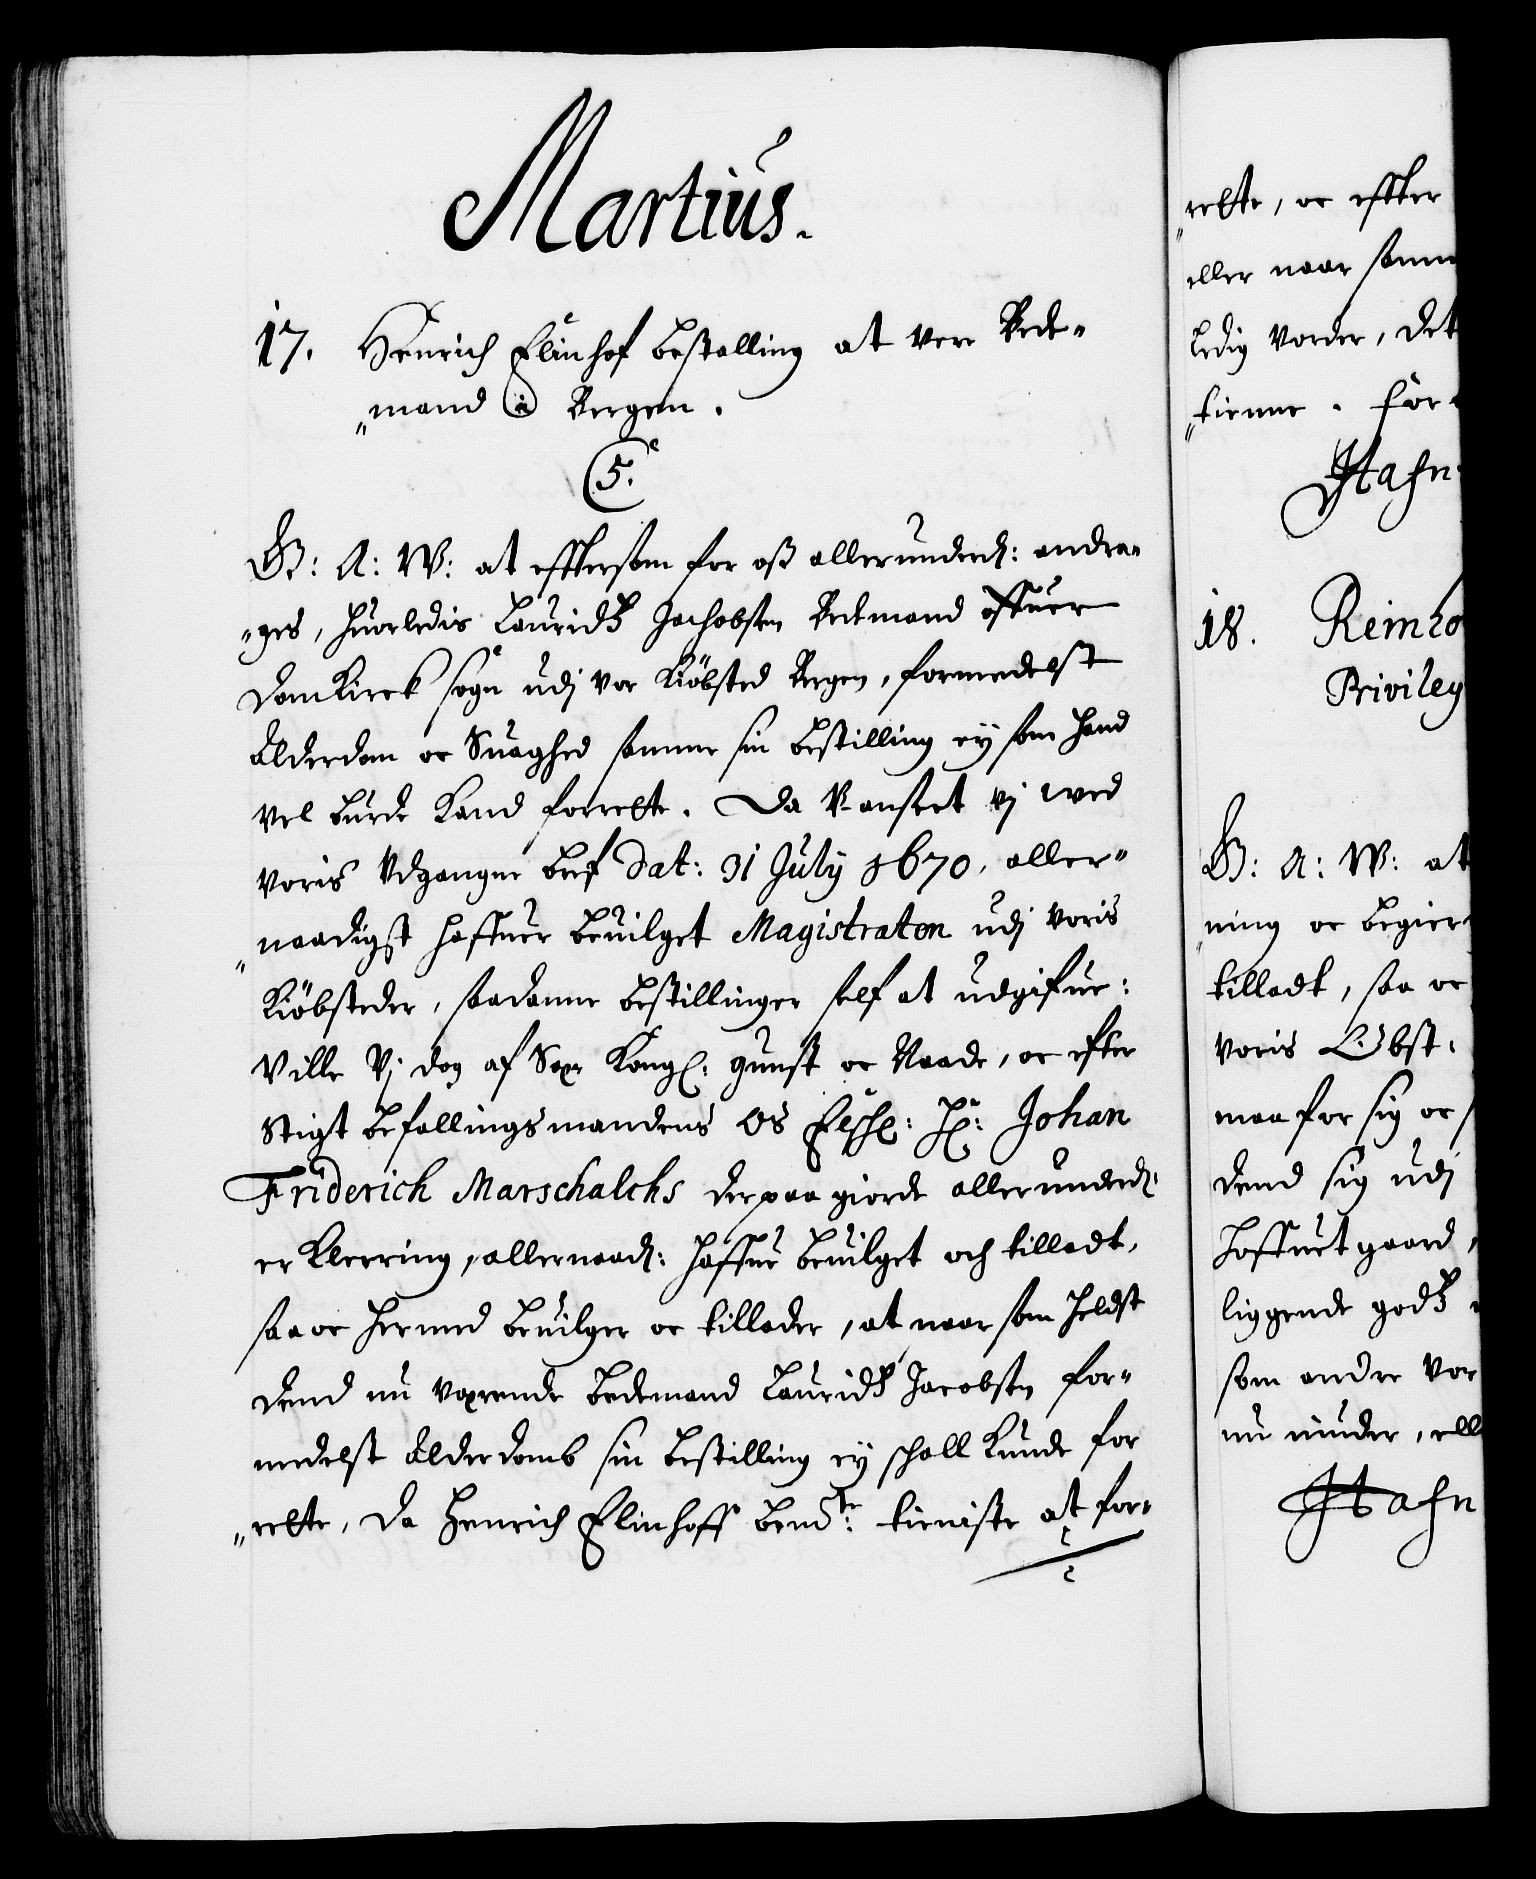 Martius.
17. Henrich Elinhof bestalling at vere Bede-
mand i Bergen.
5.
G: A: W: at efftersom for oß allerunderd: andra-
ges, huorledis Lauridtz Jachobsen Bedemand offuer
Domkirck sogn udj vor Kiöbsted Bergen, formedelst
Alderdom oc Suaghed samme sin bestilling ey som hand
vel burde kand forrette. Da V-anseet vj med
voris Vdgangne bref dat: 31 July 1670, aller-
naadigst haffuer beuilget Magistraten udj voris
Kiöbsteder, saadanne bestillinger self at udgifue:
Ville Vj dog af Kongl: gunst oc Naade, oc efter
Stigt befallingsmandens Os Elschl: Hr: Johan
Friderich Marschalchs derpaa giorde allerunderd:
erklerring, allernaad: haffue beuilget och tilladt,
saa oc hermed beuilger oc tillader, at naar som heldst
dend nu verende bedemand Lauridtz Jacobsen for-
medelst Alderdomb sin bestilling ey schall kunde for
rette, da Henrich Elinhoff bemte: tieniste at for-
rette, oc effter
eller naar samm
ledig vorder, det
tienne. For
Hafn:
18. Reinho
Privileg
G: A: W: at
ning oc begier
tilladt, saa oc
voris Obst:
maa for sig oc
dend sig udj
hoffuetgaard,
liggende godtz
som andre vor
nu minder, ell
Hafn